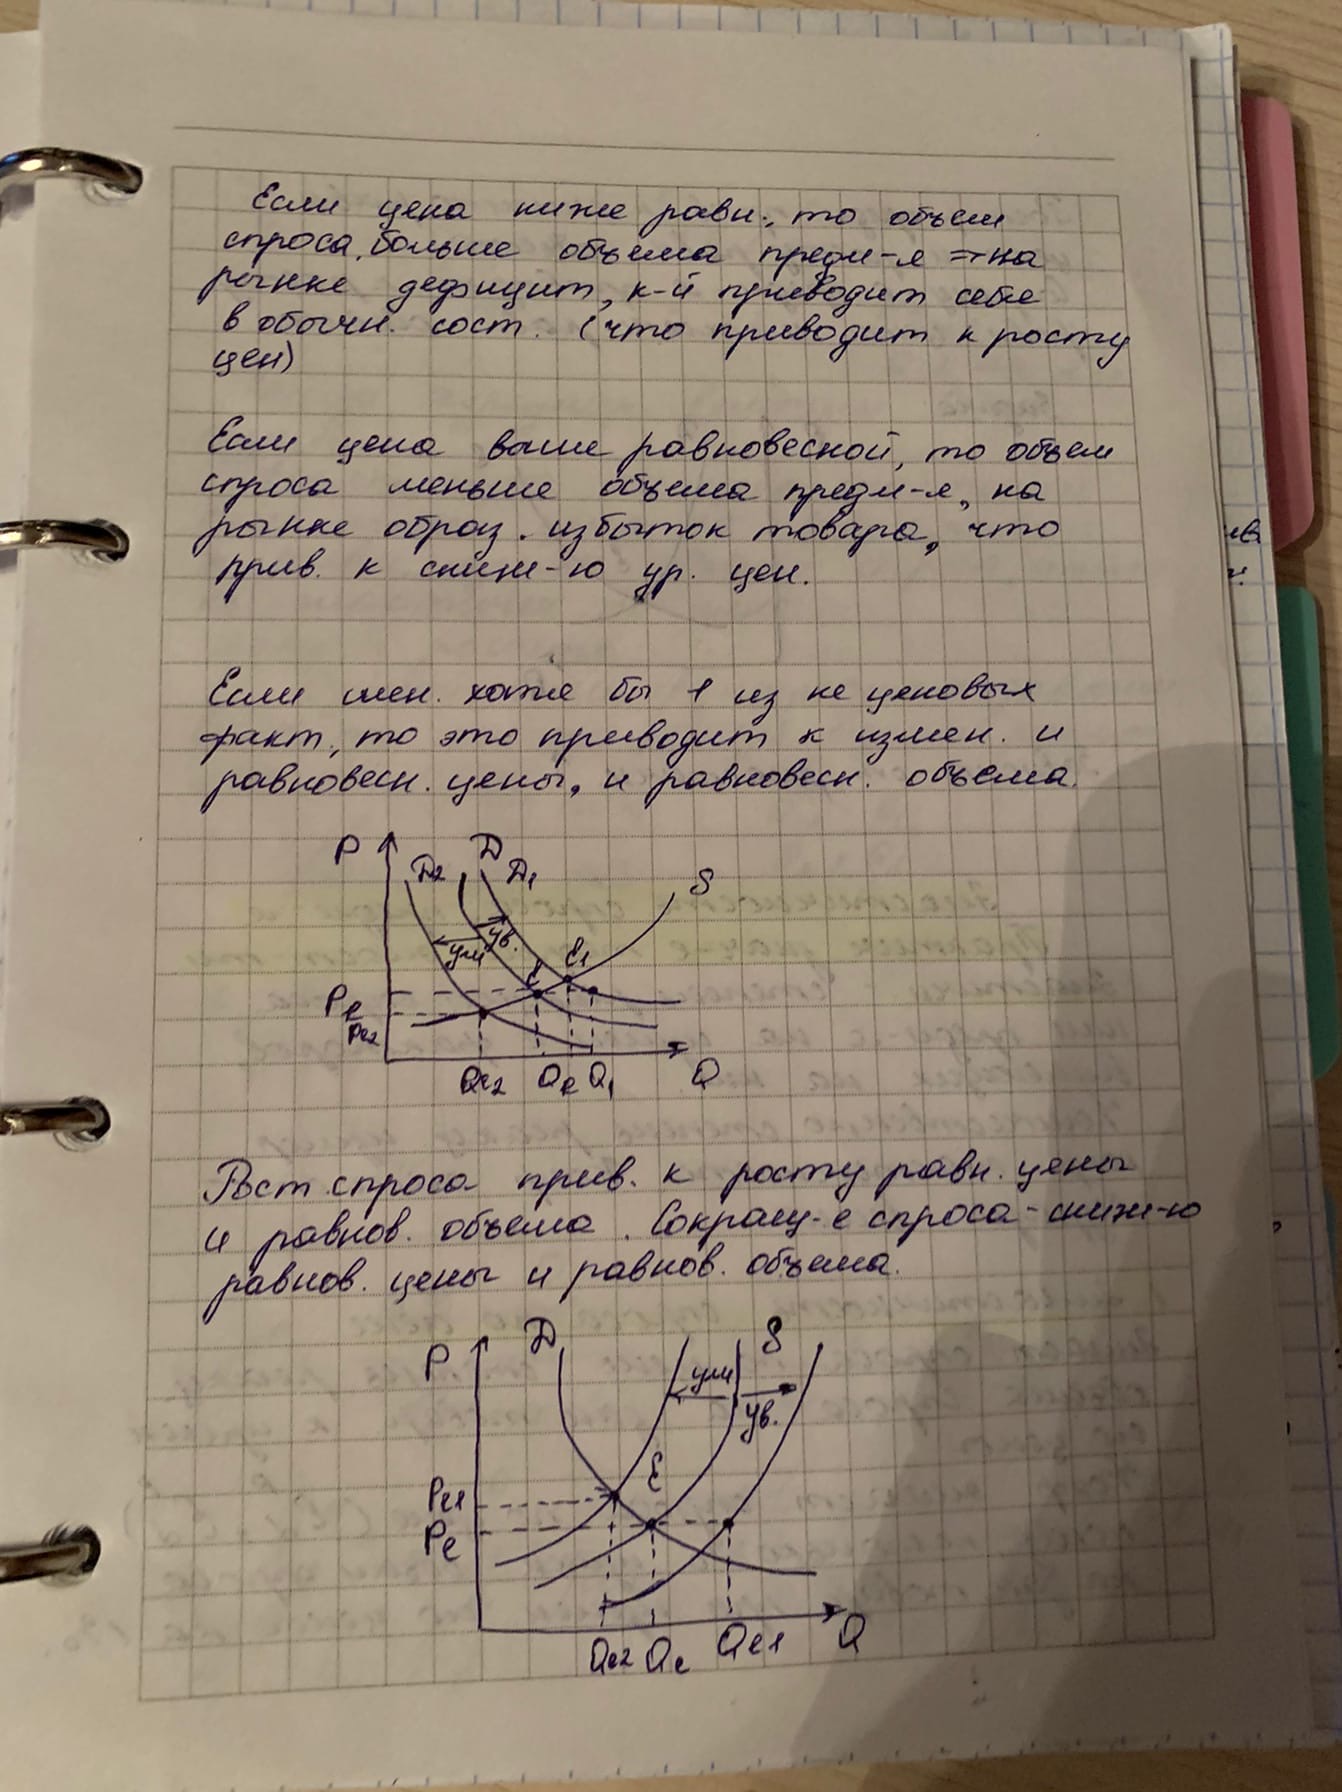 Если цена ниже равн., то объем
спроса, больше объема предл-я => на
рынке дефицит, к-й приводит себя
в обычн. сост. (что приводит к росту
цен)
Если цена выше равновесной, то объем
спроса меньше объема предл-я, на
рынке образ. избыток товара, что
прив. к сниж-ю ур. цен.
Если мен. хотя бы 1 из не ценовых
факт., то это приводит к измен. и
равновесн. цены, и равновесн. объема.
P D2 D D1 S
ум ув.
E E1
Pe
Pe2
Qe2 Qe Q1 Q
Рост спроса прив. к росту равн. цены
и равнов. объема. Сокращ-е спроса - сниж-ю
равнов. цены и равнов. объема.
P D S
ум
ув.
E
Pe1
Pe
Qe2 Qe Qe1 Q